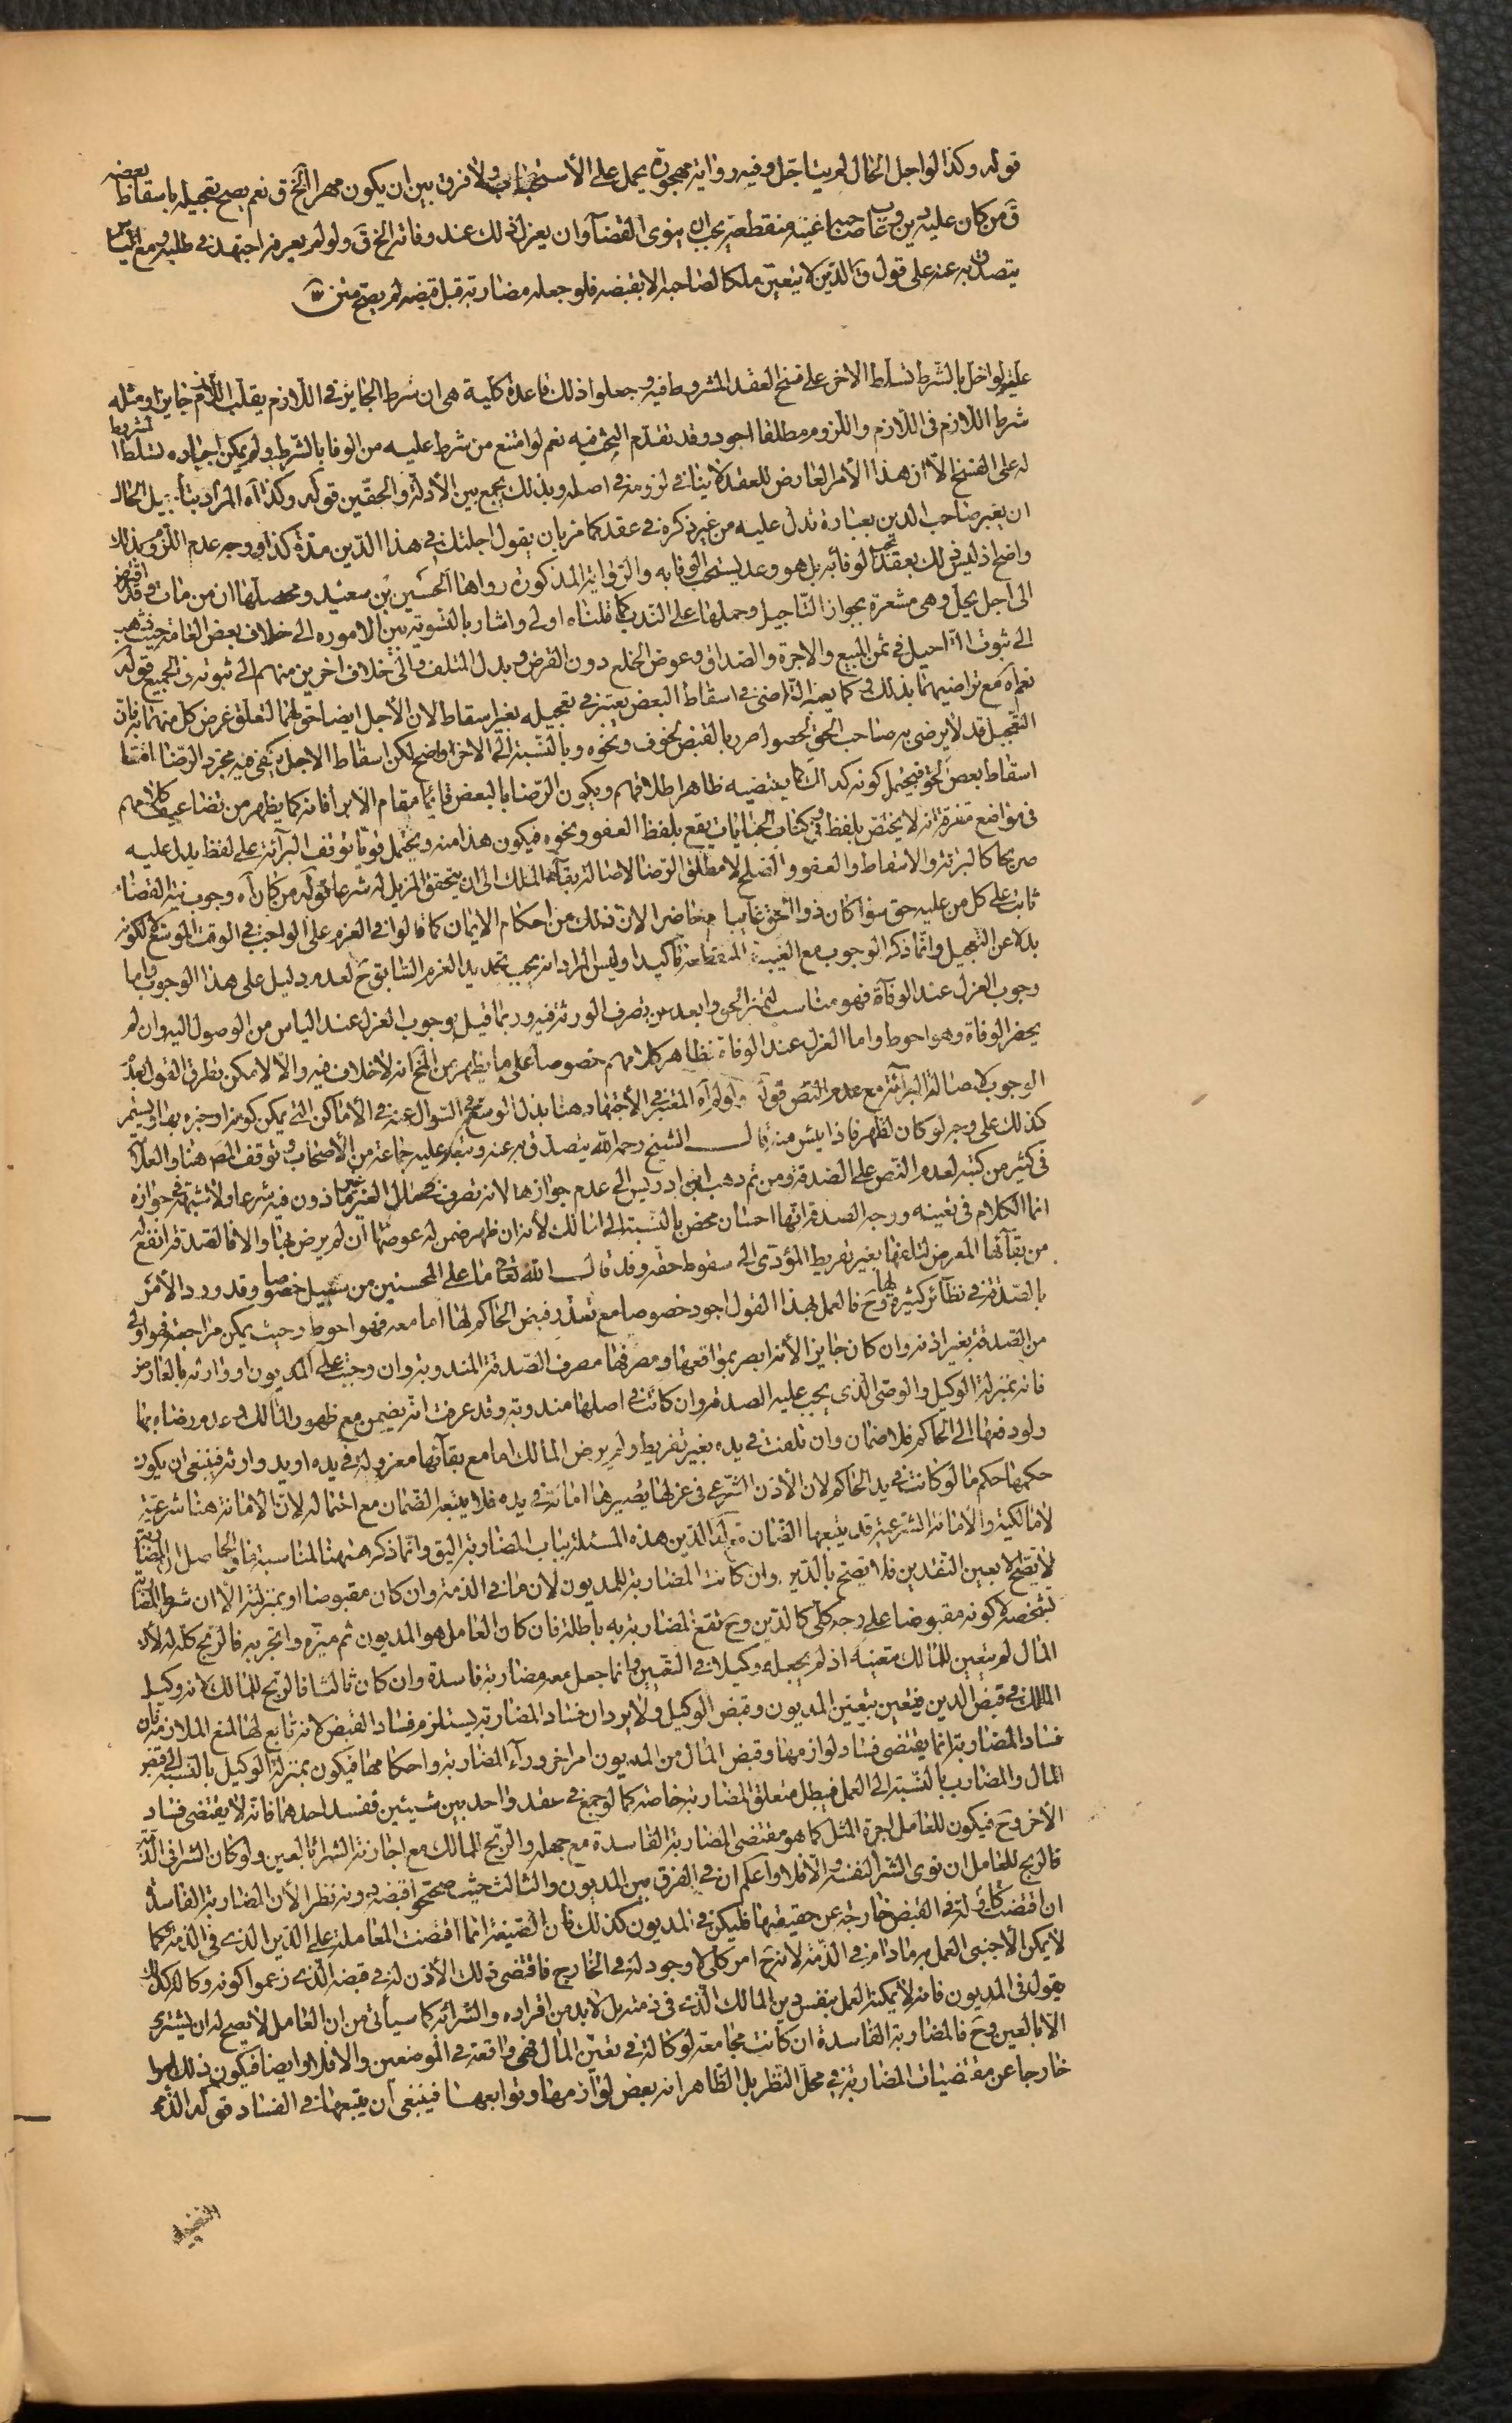 قوله وكذا لو اجل الحال لم يتاجل وفيه رواية مهجورة يحمل على الاستحباب ولا فرق بين ان يكون مهرا الخ ق نعم يصح تعجيله باسقاط بعضه
ق من كان عليه دين وغاب صاحبه غيبة منقطعة يجب ان ينوى القضآ وان يعزل ذلك عند وفاته الخ ق ولو لم يعرفه اجتهد في طلبه ومع الياس
يتصدق به عنه على قول ق الدين لا يتعين ملكا لصاحبه الا بقبضه فلو جعله مضاربة قبل قبضه لم يصح متن
عليه لو اخل بالشرط تسلط الاخر على فسخ العقد المشروط فيه وجعلوا ذلك قاعدة كلية هى ان شرط الجايز في اللازم يقلب اللازم جايزا ومثله
شرط اللازم في اللازم واللزوم مطلقا اجود وقد تقدم البحث فيه نعم لو امتنع من شرط عليه من الوفا بالشرط ولم يمكن اجباره تسلط المشروط
له على الفسخ الا ان هذا الأمر العارض للعقد لا ينافى لزومه في اصله وبذلك يجمع بين الأدلة والحقين قوله وكذا آه المراد بتأجيل الحال
ان يعبر صاحب الدين بعبارة تدل عليه من غير ذكره في عقد كما مر بان يقول اجلتك في هذا الدين مدة كذا ووجه عدم اللزوم بذلك
واضح اذ ليس ذلك بعقد يجب الوفا به بل هو وعد يستحب الوفا به والرواية المذكورة رواها الحسين بن سعيد ومحصلها ان من مات وقد اقترض
الى اجل يحل وهى مشعرة بجواز التاجيل وحملها على الندب كما قلناه اولى واشار بالتسوية بين الامور الى خلاف بعض العامة حيث ذهب
الى ثبوت التاجيل في ثمن المبيع والاجرة والصداق وعوض الخلع دون القرض وبدل المتلف والى خلاف اخرين منهم الى ثبوته في الجميع قوله
نعم آه مع تراضيهما بذلك وكما يعتبر التراضى في اسقاط البعض يعتبر في تعجيله بغير اسقاط لان الأجل ايضا حق لهما لتعلق غرض كل منهما به فان
التعجيل قد لا يرضى به صاحب الحق لحصول ضرر بالقبض لخوف ونحوه وبالنسبة الى الاخر واضح لكن اسقاط الاجل يكفى فيه مجرد الرضا اما
اسقاط بعض الحق فيحتمل كونه كذلك كما يقتضيه ظاهر اطلاقهم ويكون الرضا بالبعض قائما مقام الأبرأ فانه كما يظهر من تضاعيف كلامهم
في مواضع متفرقة انه لا يختص بلفظ وفي كتاب الجنايات يقع بلفظ العفو ونحوه فيكون هذا منه ويحتمل قويا توقف البرآئة على لفظ يدل عليه
صريحا كالبرائة والاسقاط والعفو والصلح لا مطلق الرضا لاصالة بقآء الملك الى ان يتحقق المزيل له شرعا قوله من كان آه وجوب نية القضاء
ثابت على كل من عليه حق سوا كان ذو الحق غايبا ام حاضرا لان ذلك من احكام الايمان كما قالوا في العزم على الواجب في الوقت الموسع لكونه
بدلا عن التعجيل وانما ذكر الوجوب مع الغيبة المنقطعة تاكيدا وليس المراد انه يجب تجديد العزم السابق ح لعدم دليل على هذا الوجوب واما
وجوب العزل عند الوفاة فهو مناسب لتميز الحق وابعد من تصرف الورثة فيه وربما قيل بوجوب العزل عند الياس من الوصول اليه وان لم
يحضر الوفاة وهو احوط واما العزل عند الوفاة فظاهر كلامهم خصوصا على ما يظهر من الخ انه لا خلاف فيه والا لامكن تطرق القول بعدم
الوجوب لاصالة البرآئة مع عدم النص قوله ولو لم آه المعتبر في الأجتهاد هنا بذل الوسع في السوال عنه في الأماكن التى يمكن كونه او خبره بها ويستمر
كذلك على وجه لو كان لظهر فاذا يئس منه قال الشيخ رحمه الله يتصدق به عنه وتبعه عليه جماعة من الأصحاب وتوقف المص هنا والعلامة
في كثير من كتبه لعدم النص على الصدقة ومن ثم ذهب ابن ادريس الى عدم جوازها لانه تصرف في مال الغير غير ماذون فيه شرعا ولا شبهة في جوازه
انما الكلام في تعينه ووجه الصدقة انها احسان محض بالنسبة الى المالك لأنه ان ظهر ضمن له عوضها ان لم يرض بها والا فالصدقة انفع له
من بقآئها المعرض لتلفها بغير تفريط المؤدى الى سقوط حقه وقد قال الله تعالى ما على المحسنين من سبيل خصوصا وقد ورد الأمر
بالصدقة في نظآئر كثيرة لها وح فالعمل بهذا القول اجود خصوصا مع تعذر قبض الحاكم لها اما معه فهو احوط وحيث يمكن مراجعته فهو اولى
من الصدقة بغير اذنه وان كان جايزا لأنه ابصر بمواقعها ومصرفها مصرف الصدقة المندوبة وان وجبت على المديون او وارثه بالعارض
فانه بمنزلة الوكيل والوصى الذى يجب عليه الصدقة وان كانت في اصلها مندوبة وقد عرفت انه يضمن مع ظهور المالك وعدم رضاه بها
ولو دفعها الى الحاكم فلا ضمان وان تلفت في يده بغير تفريط ولم يرض المالك اما مع بقآئها معزولة في يده او يد وارثه فينبغى ان يكون
حكمها حكم ما لو كانت في يد الحاكم لان الأذن الشرعى في عزلها يصيرها امانة في يده فلا يتبعه الضمان مع احتماله لان الأمانة هنا شرعية
لا مالكية والأمانة الشرعية قد يتبعها الضمان قوله الدين هذه المسئلة بباب المضاربة اليق وانما ذكر ههنا لمناسبة ما والحاصل ان المضاربة
لا تصح الا بعين النقدين فلا تصح بالدين وان كانت المضاربة للمديون لان ما في الذمة وان كان مقبوضا او بمنزلته الا ان شرط المضاربة
تشخصه وكونه مقبوضا على وجه كلى كالدين وح تقع المضاربة به باطلة فان كان العامل هو المديون ثم ميزه واتجر به فالربح كله له لأن
المال لم يتعين للمالك متعينه اذ لم يجعله وكيلا في التعيين وانما جعل معه مضاربة فاسدة وان كان ثالثا فالربح للمالك لانه وكيل
المالك في قبض الدين فيتعين بتعيين المديون وقبض الوكيل ولا يرد ان فساد المضاربة يستلزم فساد القبض لانه تابع لها لمنع الملازمة فان
فساد المضاربة انما يقتضى فساد لوازمها وقبض المال من المديون امر اخر ورآء المضاربة واحكامها فيكون بمنزلة الوكيل بالنسبة الى قبض
المال والمضارب بالنسبة الى العمل فيبطل متعلق المضاربة خاصة كما لو جمع في عقد واحد بين شيئين ففسد احدهما فانه لا يقتضى فساد
الأخر وح فيكون للعامل اجرة المثل كما هو مقتضى المضاربة الفاسدة مع جهله والربح للمالك مع اجازته الشرآئ بالعين ولو كان الشرا في الذمة
فالربح للعامل ان نوى الشرآ لنفسه والا فلا واعلم ان في الفرق بين المديون والثالث حيث صححوا قبضه دونه نظرا لأن المضاربة الفاسدة
ان اقتضت وكالة في القبض خارجة عن حقيقتها فليكن في المديون كذلك فان الصيغة انما اقتضت المعاملة على الدين الذى في الذمة فكما
لا يمكن الأجنبى العمل به ما دام في الذمة لانه ح امر كلى لا وجود له في الخارج فاقتضى ذلك الأذن له في قبضه الذى زعموا كونه وكالة كذلك
يقول في المديون فانه لا يمكنه العمل بنفس دين المالك الذى في ذمته بل لا بد من افراده والشرآ به كما سيأتى من ان العامل لا يصح له ان يشترى
الا بالعين وح فالمضاربة الفاسدة ان كانت مجامعة لوكالة في تعين المال فهى واقعة في الموضعين والا فلا وايضا فيكون ذلك امرا
خارجا عن مقتضيات المضاربة في محل النظر بل الظاهر انه بعض لوازمها وتوابعها فينبغى ان يتبعها في الفساد قوله الذمى